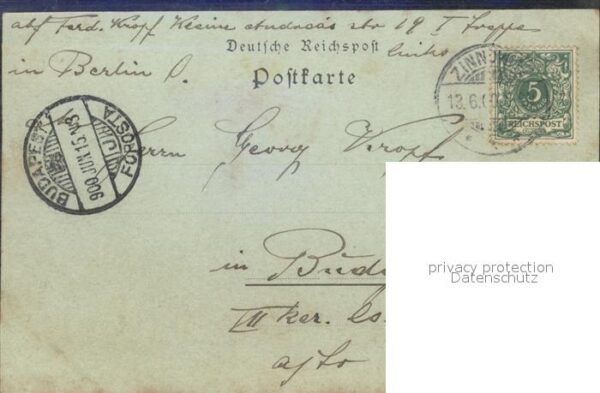 abs Ferd. Kropf Kleine Andreas str 19 I Treppe
links
in Berlin O.
Deutsche Reichspost
Postkarte
ZINNO
13.6.00
5
REICHSPOST
BUDAPEST
FŐPOSTA
900 JUN 15 N3
Herrn Georg Kropf
in Bud
III ker.
ajto
privacy protection
Datenschutz